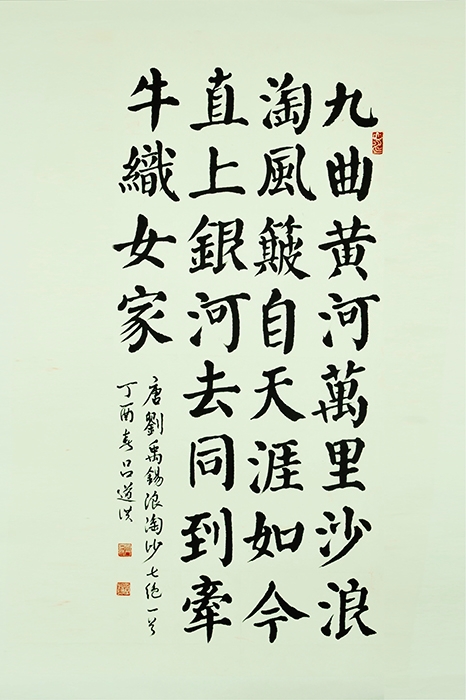 九曲黄河萬里沙浪
淘風簸自天涯如今
直上銀河去同到牽
牛織女家
唐劉禹錫浪淘沙七绝一首
丁酉春吕道洪